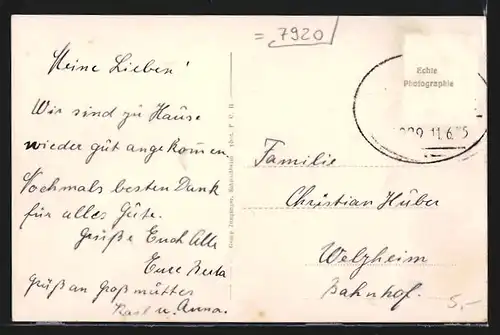 = 7920
Meine Lieben!
Wir sind zu Hause
wieder gut angekommen.
Nochmals besten Dank
für alles Gute.
Grüße Euch Alle
Eure Berta
Gruß an Großmutter
Karl u. Anna.
Echte
Photographie
11.6.
Familie
Christian Huber
Welzheim
Bahnhof.
5,-